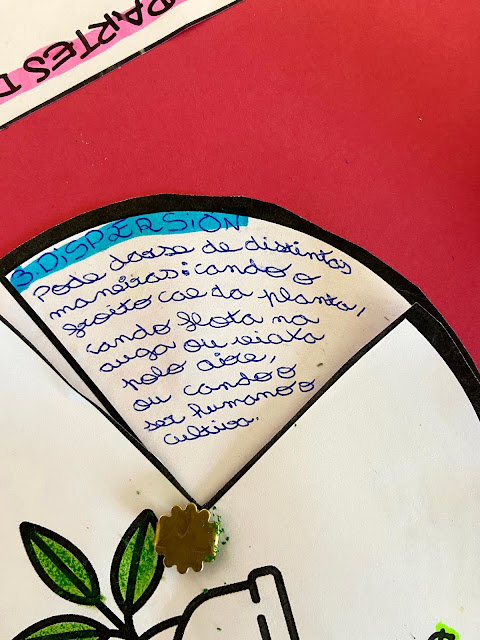 PARTES D
3. DISPERSIÓN
Pode darse de distintas
maneiras: cando o
froito cae da planta,
cando flota na
auga ou viaxa
polo aire,
ou cando o
ser humano o
cultiva.